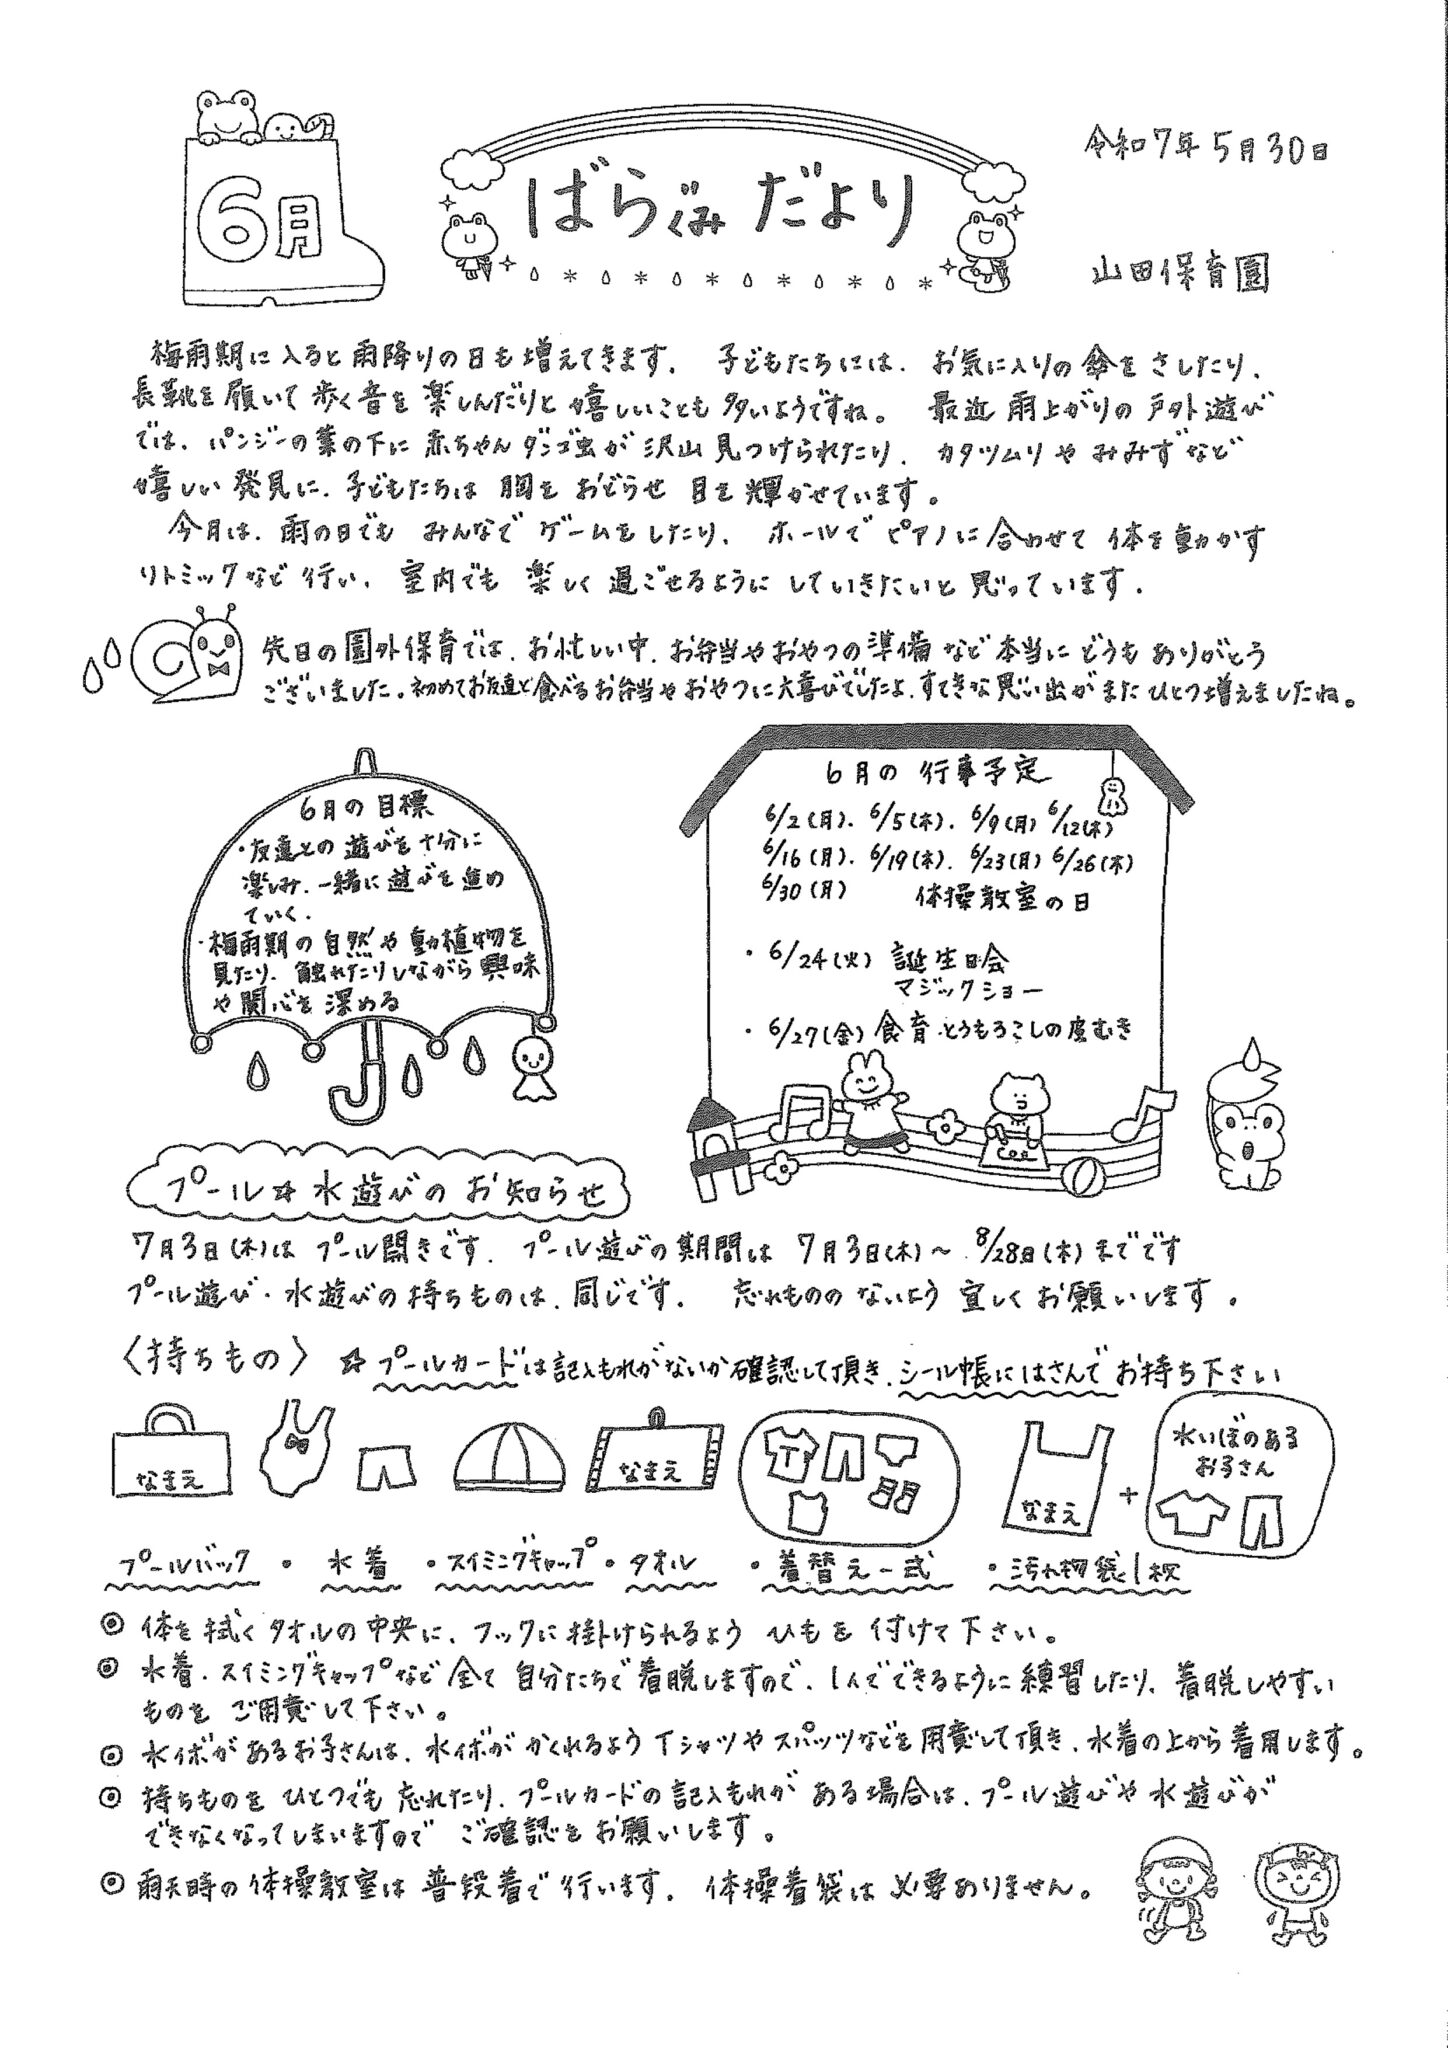 6月
ばらぐみだより
令和7年5月30日
山田保育園
梅雨期に入ると雨降りの日も増えてきます。子どもたちには、お気に入りの傘をさしたり、
長靴を履いて歩く音を楽しんだりと嬉しいことも多いようですね。最近雨上がりの戸外遊び
では、パンジーの葉の下に赤ちゃんダンゴ虫が沢山見つけられたり、カタツムリやみみずなど
嬉しい発見に、子どもたちは胸をおどらせ目を輝かせています。
今月は、雨の日でもみんなでゲームをしたり、ホールでピアノに合わせて体を動かす
リトミックなど行い、室内でも楽しく過ごせるようにしていきたいと思っています。
先日の園外保育では、お忙しい中、お弁当やおやつの準備など本当にどうもありがとう
ございました。初めてお友達と食べるお弁当やおやつに大喜びでしたよ。すてきな思い出がまたひとつ増えましたね。
6月の目標
・友達との遊びを十分に
楽しみ、一緒に遊びを進め
ていく。
・梅雨期の自然や動植物を
見たり、触れたりしながら興味
や関心を深める
6月の行事予定
6/2(月)、6/5(木)、6/9(月) 6/12(木)
6/16(月)、6/19(木)、6/23(月) 6/26(木)
6/30(月) 体操教室の日
・6/24(火) 誕生日会
マジックショー
・6/27(金) 食育・とうもろこしの皮むき
プール☆水遊びのお知らせ
7月3日(木)はプール開きです。プール遊びの期間は7月3日(木)～8/28日(木)までです
プール遊び・水遊びの持ちものは、同じです。忘れもののないよう宜しくお願いします。
〈持ちもの〉 ☆プールカードは記入もれがないか確認して頂き、シール帳にはさんでお持ち下さい
なまえ
なまえ
なまえ
+
水いぼのある
お子さん
プールバック・水着・スイミングキャップ・タオル・着替え一式・汚れ物袋1枚
◎ 体を拭くタオルの中央に、フックに掛けられるようひもを付けて下さい。
◎ 水着、スイミングキャップなど全て自分たちで着脱しますので、1人でできるように練習したり、着脱しやすい
ものをご用意して下さい。
◎ 水イボがあるお子さんは、水イボがかくれるようTシャツやスパッツなどを用意して頂き、水着の上から着用します。
◎ 持ちものをひとつでも忘れたり、プールカードの記入もれがある場合は、プール遊びや水遊びが
できなくなってしまいますのでご確認をお願いします。
◎ 雨天時の体操教室は普段着で行います。体操着袋は必要ありません。